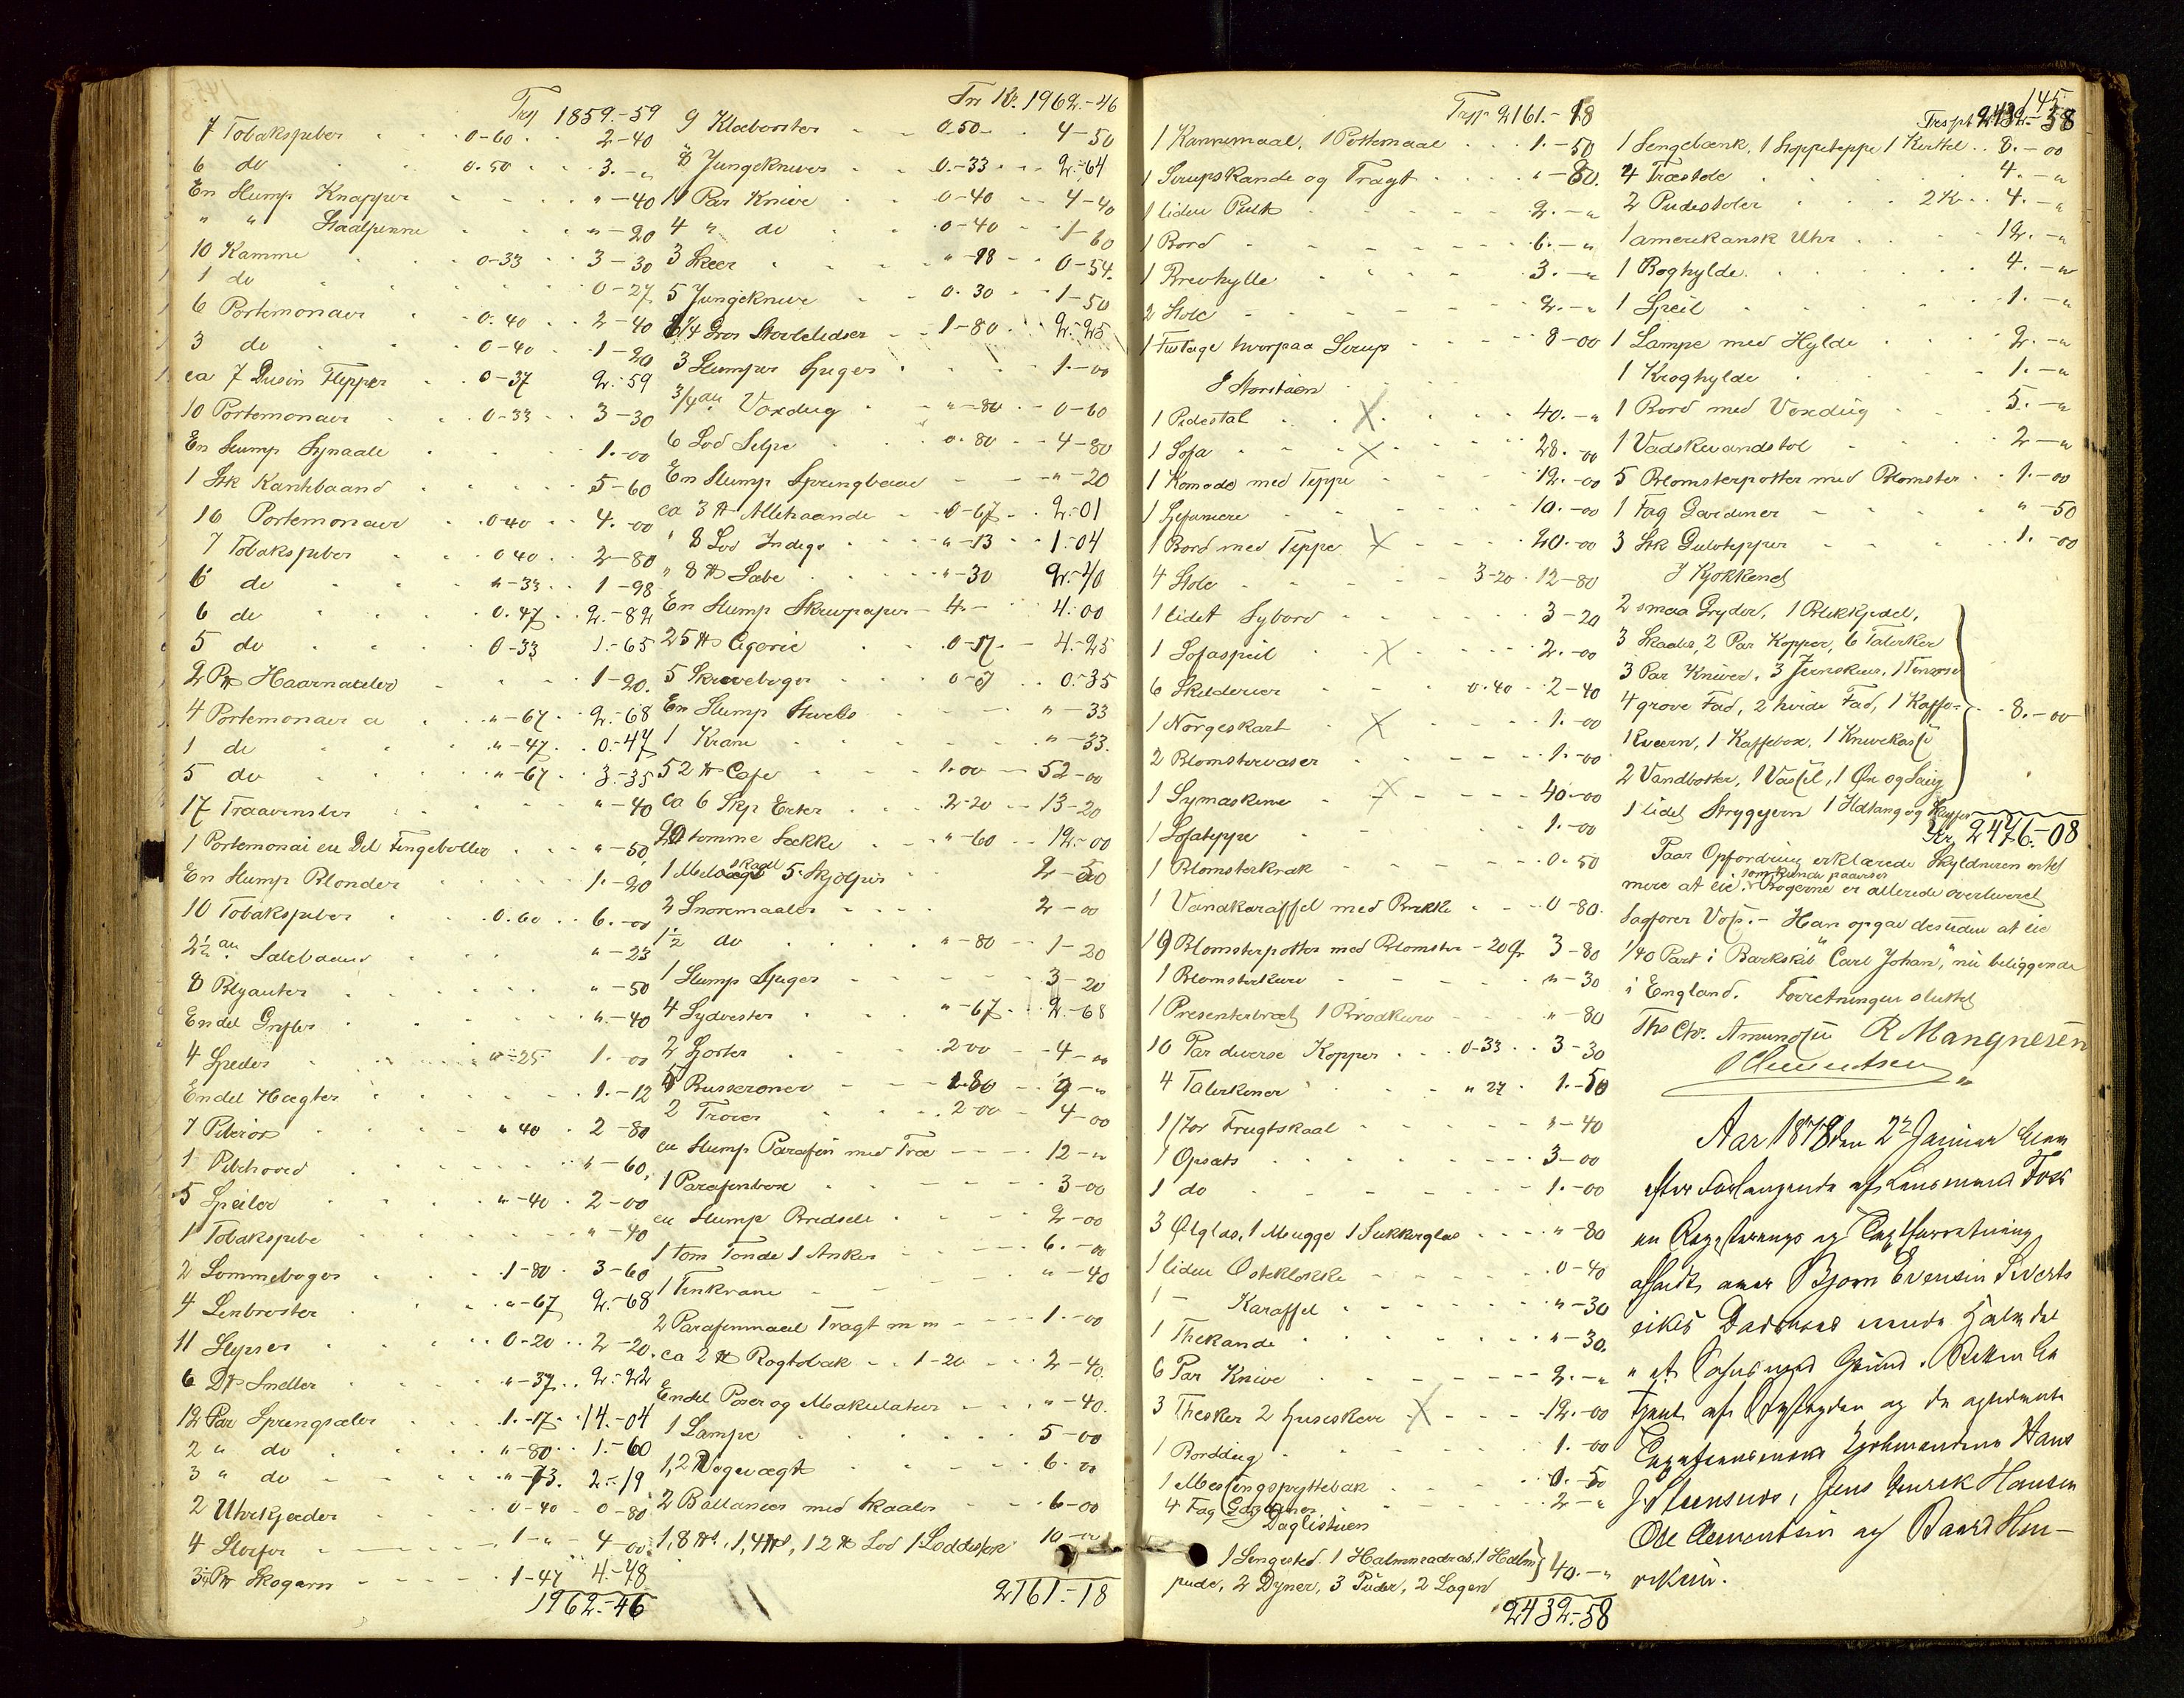 Trsp 1859.-59
7 Tobakspiber 0-60 2-40
6 do 0.50 3.-"
En Slump Knapper "-40
" " Staalpenne "-20
10 Kamme 0-33 3-30
1 do 0-27
6 Portemonaier 0.40 2-40
3 do 0-40 1-20
ca 7 Dusin Hepper 0-37 2.-59
10 Portemonaier 0-33 3-30
En Slump Synaale 1.-00
1 Stk Kantebaand 5-60
10 Portemonaier 0-40 4.-00
7 Tobakspiber 0 40 2-80
6 do "-33 1-98
6 do 0.47 2.-82
5 do 0-33 1.-65
2 Pk Haarnaaler 1-20
4 Portemonaier a "-67 2.-68
1 do "-47 0.-47
5 do "-67 3.-35
17 Traavenster "-40
1 Portemonai en Del Fingebøller "-50
En Slump Blonder 1.-20
10 Tobakspiber 0.60 6.-00
2½ al. Salebaand "-23
8 Blyanter "-50
Endel Grifler "-40
4 Speiler "-25 1.-00
Endel Hægter 1.-12
7 Piberør "40 2-80
1 Pibehoved "-60
5 Speiler "-40 2-00
1 Tobakspibe "-40
2 Lommebøger 1-80 3-60
4 Lenbrøster "-67 2.-68
11 Slipser 0-20 2-20
6 Ds Sneller "-37 2.-22
12 Par Springsæler 1.-17 14.-04
2 " do "-80 1.-60
3 " do "-73 2.-19
2 Uhrkjæder 0-40 0-80
4 Skrifer 1-" 4-00
Skogarn 1-47 4.-48
1962.-46
Trs Kr. 1962.-46
9 Klæbørster 0.50 4-50
8 Jungeknives 0.-33 2.-64
11 Par Knive 0-40 4-40
4 " do 0-40 1-60
3 Skeer "-18 0-54
5 Jungeknive 0.30 1-50
1¼ Gros Støvlelidser 1-80 2.-25
3 Slumper Spiger 1.-00
¾ al. Voxdug "-80 0-60
6 Lod Selpe 0.80 4-80
En Slump Springbaand "-20
ca 3 ℔ Allehaande 0-67 2.-01
" 8 Lod Indigo "-13 1.-04
" 8 ℔ Sæbe "-30 2.-40
En Slump Skrivpapir 4- 4.-00
25 ℔ Cigorie 0-17 4.-25
5 Skrivebøger 0-07 0.-35
En Slump Stivels "-33
1 Krane "-33
52 ℔ Cafe 1.00 52-00
ca 6 Skp Erter 2-20 13-20
20 tomme Sække "-60 12.-00
1 Melvægt Skaal 5 Skjølper 2-50
2 Snoremaaler 2-00
1½ do "-80 1-20
1 Slump Spiger 3-20
4 Sydvester "-67 2.-68
2 Skjorter 2 00 4-00
5 Busseroner 1.80 9-"
2 Trøier 2 00 4-00
en Slump Parafin med Træ 12-"
1 Parafinbox 3-00
en Slump Bredsele 2-00
1 tom Tønde 1 Anker 6.-00
1 Tinkrane "-40
2 Parafinmaal Tragt m m 1.-00
ca 2 ℔ Røgtobak 1-20 2-40
Endel Poser og Makulatur "-40
1 Lampe 5-00
1,2 Vogevægt 6.00
2 Ballancer med Skaaler 6-00
1,8 ℔, 1,4 ℔, 1 2 ℔ Lod 1 Loddeske 10-00
2161-18
Trspt 2161.-18
1 Kannemaal, 1 Pottemaal 1.-50
1 Sirupskande og Tragt "-80
1 liden Pult 2.-"
1 Bord 6.-"
1 Brevhylle 3.-"
2 Stole 2.-"
1 Fustage hvorpaa Sirup 8-00
I Storstuen
1 Pidestal X 40.-"
1 Sofa X 28.00
1 Komode med Teppe 12.-00
1 Chifoniere 10.-00
1 Bord med Teppe X 20.-00
4 Stole 3-20 12-80
1 lidet Sybord 3-20
1 Sofaspeil X 2.-00
6 Skilderier 0.40 2-40
1 Norgeskart X 1.-00
2 Blomstervaser 1.-00
1 Symaskine X 40.-00
1 Sofateppe 1.-00
1 Blomsterkrak 0.50
1 Vandkaraffel med Brikke 0-80
19 Blomsterpotter med Blomster 20 Ør 3-80
1 Blomsterkurv "-30
1 Presenterbræt 1 Brødkurv "-80
10 Par diverse Kopper 0-33 3-30
4 Talerkener "27 1.-50
1 Frugtskaal "-40
1 Opsats 3-00
1 do 1.-00
3 Ølglas, 1 Mugge 1 Sukkerglas "-80
1 liden Osteklokke 0-40
1 - Karaffel "-30
1 Thekande "-30
6 Par Knive 2.-"
3 Thesker 2 Spiseskeer X 12.-00
1 Borddug 1.-00
1 Messingspyttebak 0.-50
4 Fag Gardiner 2-"
Daglistuen
1 Sengested 1 Halmmadras, 1 Halm
pude, 2 Dyner, 3 Puder, 2 Lagen 40.-"
2432-58
145.
Trspt 2432-58
1 Sengebænk, 1 Stoppeteppe 1 Kittel 8.-00
4 Træstole 4.-"
2 Pudestoler 2 Kr 4.-"
1 amerikansk Uhr 12.-"
1 Boghylde 4.-"
1 Speil 1.-"
1 Lampe med Hylde 2.-"
1 Kroghylde 1.-"
1 Bord med Voxdug 5.-"
1 Vadskevandstol 2-"
5 Blomsterpotter med Blomster 1.-00
1 Fag Gardiner "-50
3 Stk Gulvtepper 1.-00
I Kjøkkenet
2 smaa Gryder, 1 Blikkjedel,
3 Skaaler, 2 Par Kopper, 6 Talerker
3 Par Kniver, 3 Jernskeer, 1 Terrine
4 grove Fad, 2 hvide Fad, 1 Kaffe- 8.-00
1 Kværn, 1 Kaffebox, 1 Knivekasse
2 Vandbøtter, 1 Vassel, 1 Øxe og Saug
1 lidet Strygejern 1 Ildtang og Skuffe
Kr 2476.-08
Paa Opfordring erklærede Skyldneren intet
mere at eie som kunde paavises. Bøgerne er allerede overleveret
Sagfører Voss.- Han opgav desuden at eie
1/40 Part i Barkskib "Carl Johan", nu beliggende
i England. Forretningen sluttet
Ths Chr. Amundsen R Mangnesen
OClementsen
Aar 1878 den 2n Januar blev
efter Forlangende af Lensmand Foss
en Registrerings og Taxtforretning
afholdt over Bjørn Evensen Siverts
eikes Dødsboes eiende Halvdel
i et Vaanings Grund. Retten be
tjent af Lensmanden og de opnævnte
Taxtsmænd Hans
J. Steensnæs, Jens Henrik Hansen
Ole Clementsen og Baard Hen-
riksen.